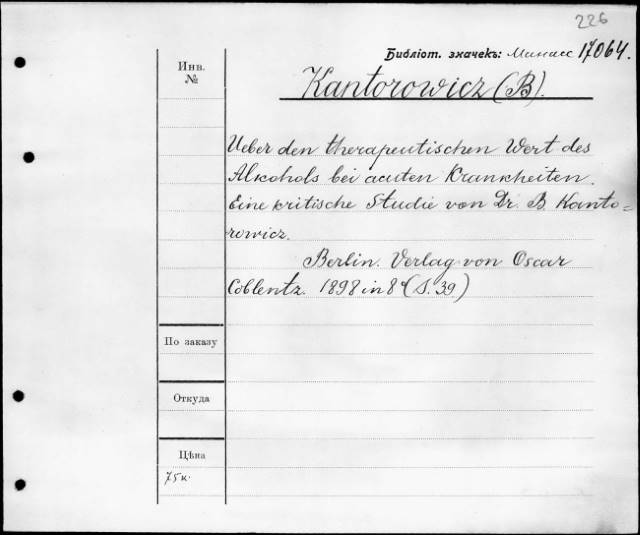 226
Библіот. значекъ: Минасс 17064.
Инв.
№
Kantorowicz (B).
Ueber den therapeutischen Wert des
Alkohols bei acuten Krankheiten.
Eine kritische Studie von Dr. B. Kanto=
rowicz.
Berlin. Verlag von Oscar
Coblentz. 1898 in 8° (S. 39)
По заказу
Откуда
Цѣна
75к.